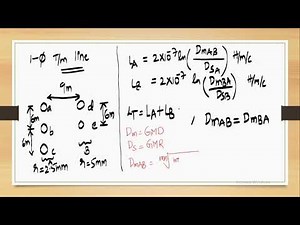 1-φ T/m line
9m
a
d
6m
6m
b
e
6m
c
3
r=2.5mm
r=5mm
L_A = 2×10⁻⁷ ln(D_mAB/D_SA) H/m/c
L_B = 2×10⁻⁷ ln(D_mBA/D_SB) H/m/c
L_T = L_A + L_B
, D_mAB = D_mBA
D_m = GMD
D_s = GMR
D_mAB = mn√